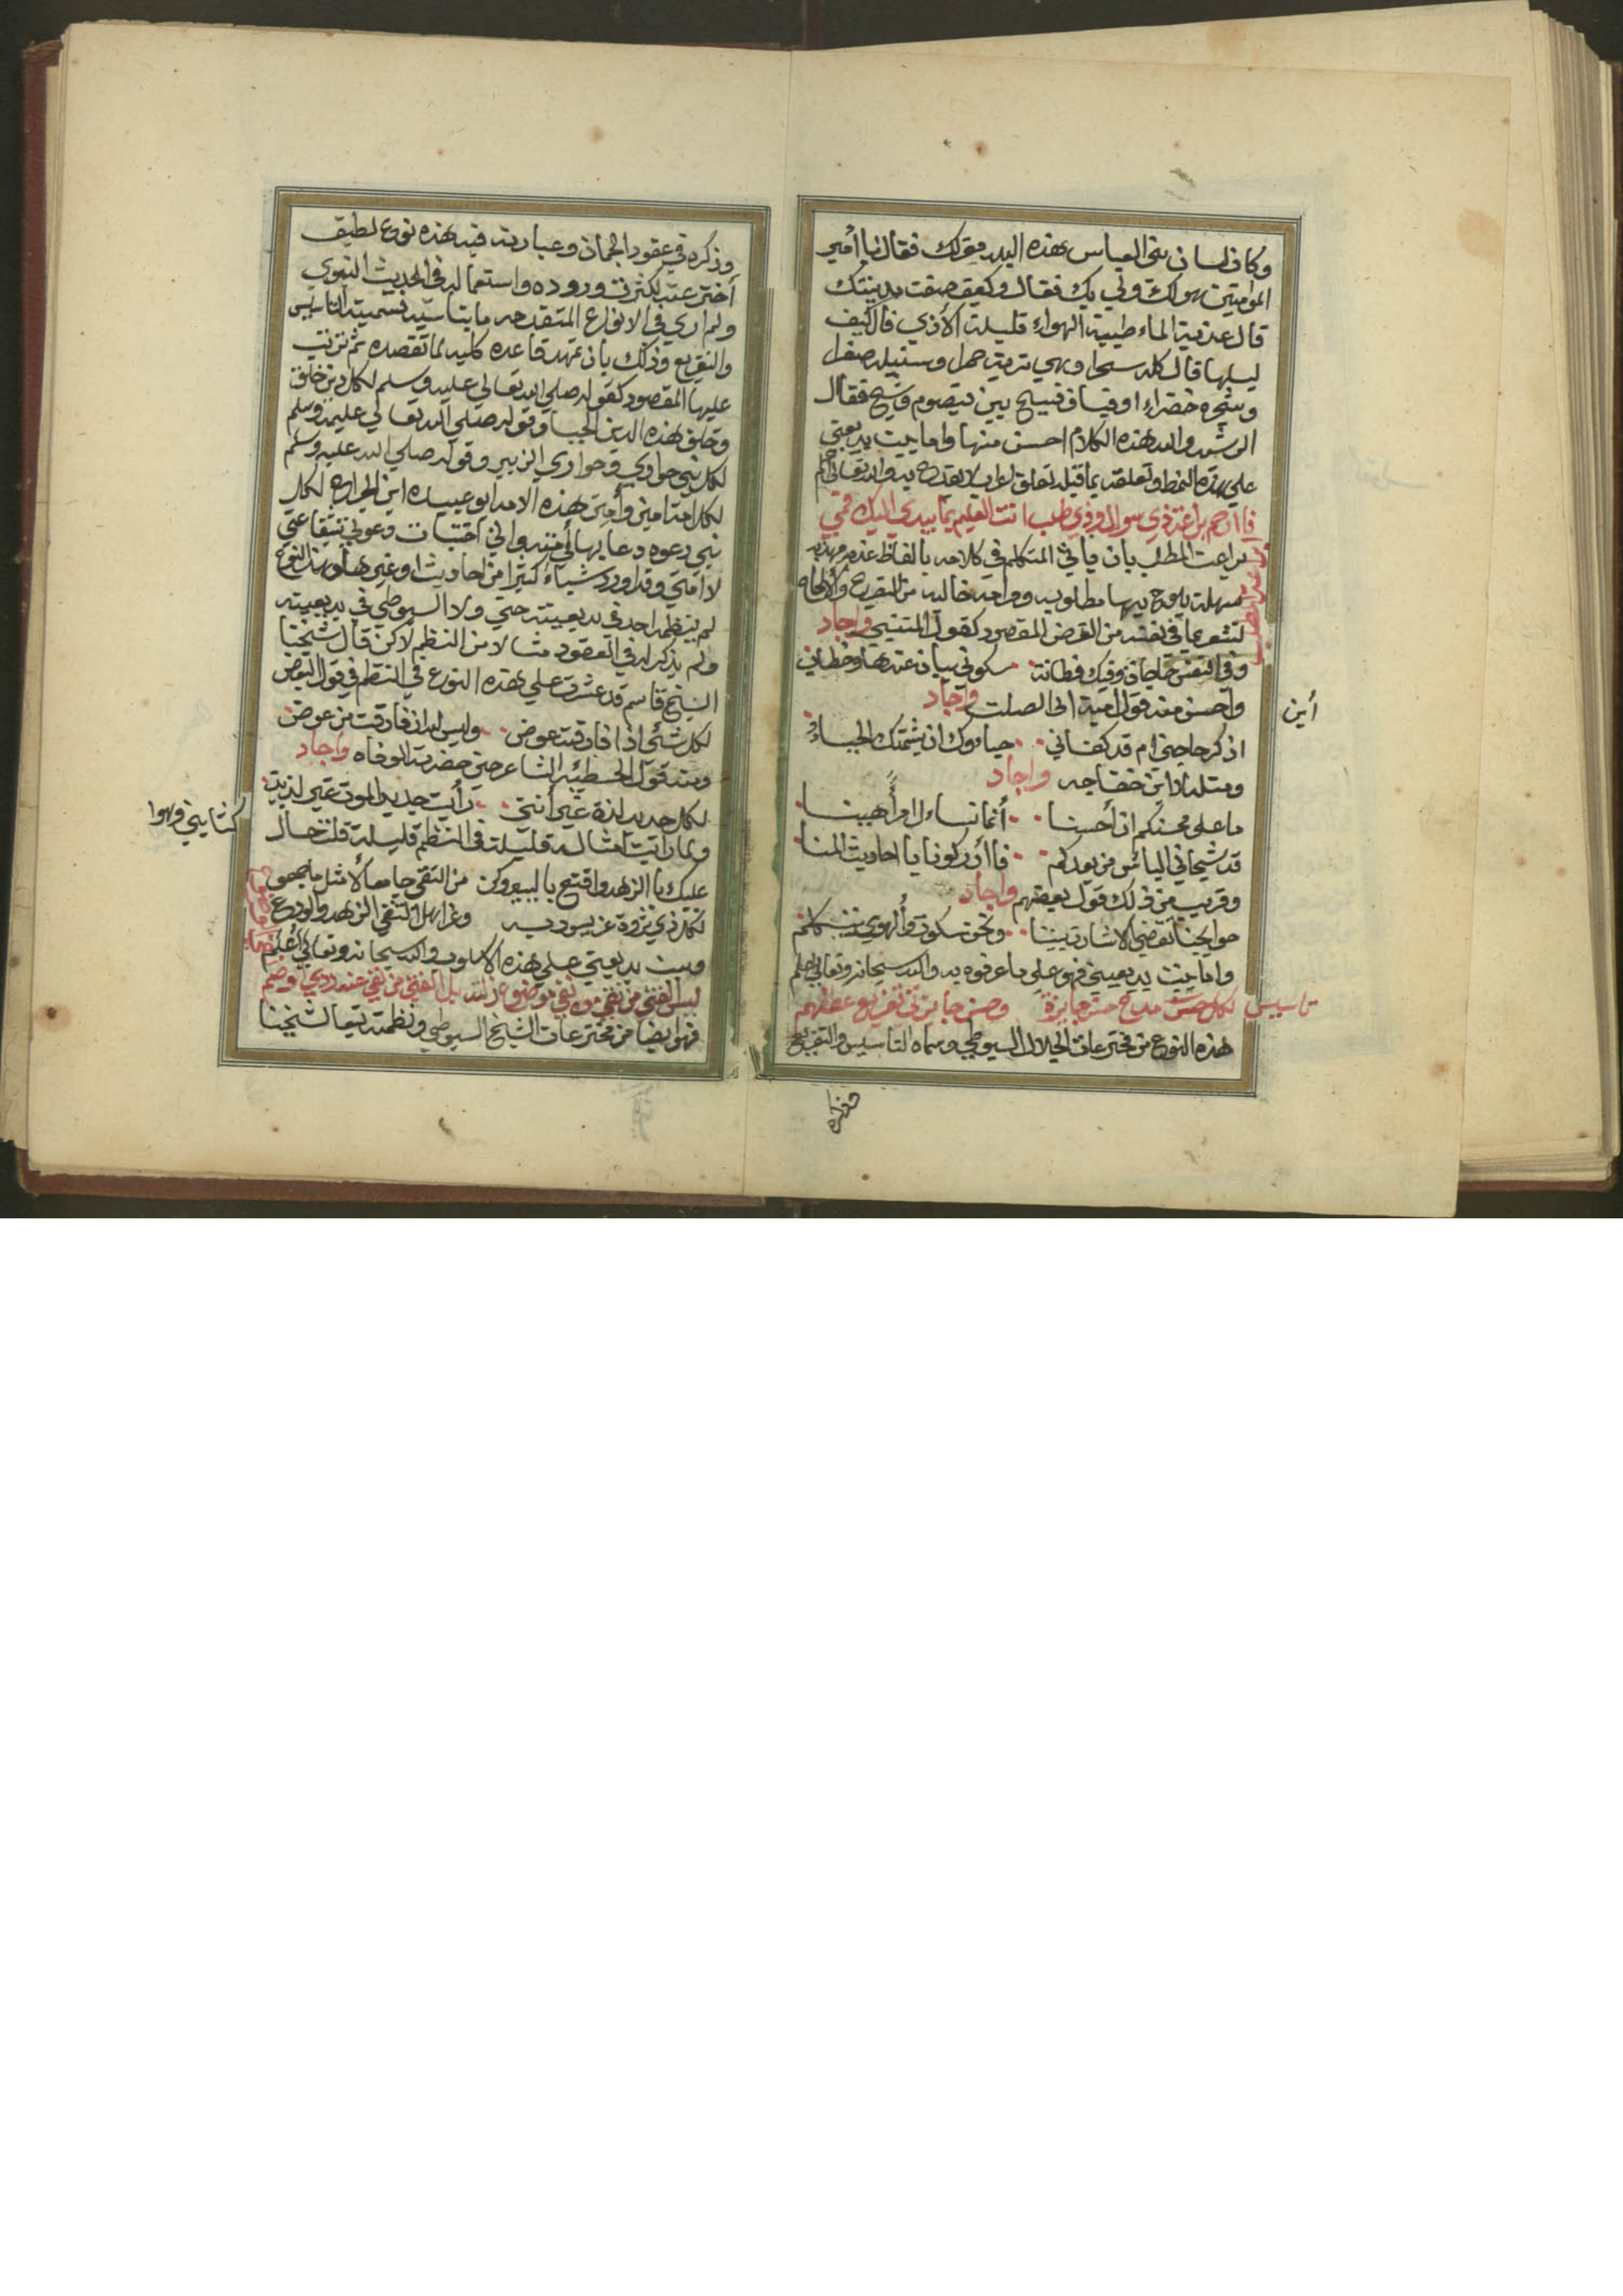 وكان لسان بني العباس بهذه البلد مقولك فقال يا أمير
الموامنين هولك ولي بك فقال وكيف صفت مدينتك
قال عذبة الماء طيبة الهواء قليلة الأذي قال كيف
ليلها قال كله سحرا وهي تربة حمرا وسنبلة صفرا
وشجرة خضراء اوفياف فسيح بين قيصوم وشيح فقال
الرشيد والله هذه الكلام احسن منها واما بيت بديعتي
علي هذه النمط وتعلقه بما قبله تعلق
براعت المطلب بان ياتي المتكلم في كلامه بالفاظ عذبه مهذبه
سهلة يلوح بها مطلوبه ومراعه خاليه من التصريح والالحاه
لتشعر بما في نفسه من الغرض المقصود كقول المتنبي واجاد
وفي النفس حاجات وفيك فطانة سكوتي بيان عندها وخطابي
واحسن منه قول امية ابي الصلت واجاد
أين
اذكر حاجتي ام قد كفاني حياوك ان شيمتك الحياء
ومثله لابن خفاجه واجاد
ما علي محسنكم ان أحسنا أنما نساءل امرا هينا
قد شجاني الياس من بعدكم فاأدركونا باحاديث المنا
وقريب من ذلك قول بعضهم واجاد
حوايجنا تقضي الاشارة بيننا ونحن سكوت وألهوي يتكلم
واما بيت بديعيتي فهو علي ما عرفوه به والله سبحانه وتعالي اعلم
تاسيس لكل حسن مديح حسن جايزة وحسن جايزتي تفريع عفوهم
هذه النوع من مخترعات الجلال السيوطي وسماه التاسيس والتفريع
وذكره
وذكره في عقود الجمان وعبارته فيه هذه نوع لطيف
أخترعته لكثرت وروده واستعماله في الحديث النبوي
ولم اري في الانواع المتقدمه ما يناسبه فسميته التاسيس
والتفريع وذلك بان تمهد قاعده كليه لما تقصده ثم ترتب
عليها المقصود كقوله صلي الله تعالي عليه وسلم لكل دين خلق
وخلق هذه الدين الحيا وقوله صلي الله تعالي عليه وسلم
لكل نبي حواري وحواري الزبير وقوله صلي الله عليه وسلم
لكل امة امين وأمين هذه الامه ابو عبيده ابن الجراح لكل
نبي دعوه دعا بها لأمته واني اختبات دعوتي شفاعتي
لامتي وقد اورد شياء كثيرا من احاديث وغيرها وهذا النوع
لم ينظمه احد في بديعيته حتي ولا السيوطي في بديعيته
ولم يذكر له في العقود مثالا من النظم لاكن قال شيخنا
الشيخ قاسم قد عثرت علي هذه النوع في النظم في قول البعض
لكل شئ اذا فارقته عوض وليس لله ان فارقت من عوض
ومنه قول الحطيئه الشاعر حين حضرته الوفاه واجاد
لكل جديد لذة غير أنني رأيت جديد الموت غير لذيذ
ولما رأيت امثاله قليلة في النظم قليله قلت حال
كتابيتي وهوا
عليك باالزهد واقنع باليسير وكن من التقي جامعا
لكل ذي ثروة عز يسود به وعز اهل التقي الزهد والورع
وبيت بديعيتي علي هذه الاسلوب والله سبحانه وتعالي أعلم
فهو ايضا من مخترعات الشيخ السيوطي ونظمته تبعا لشيخنا